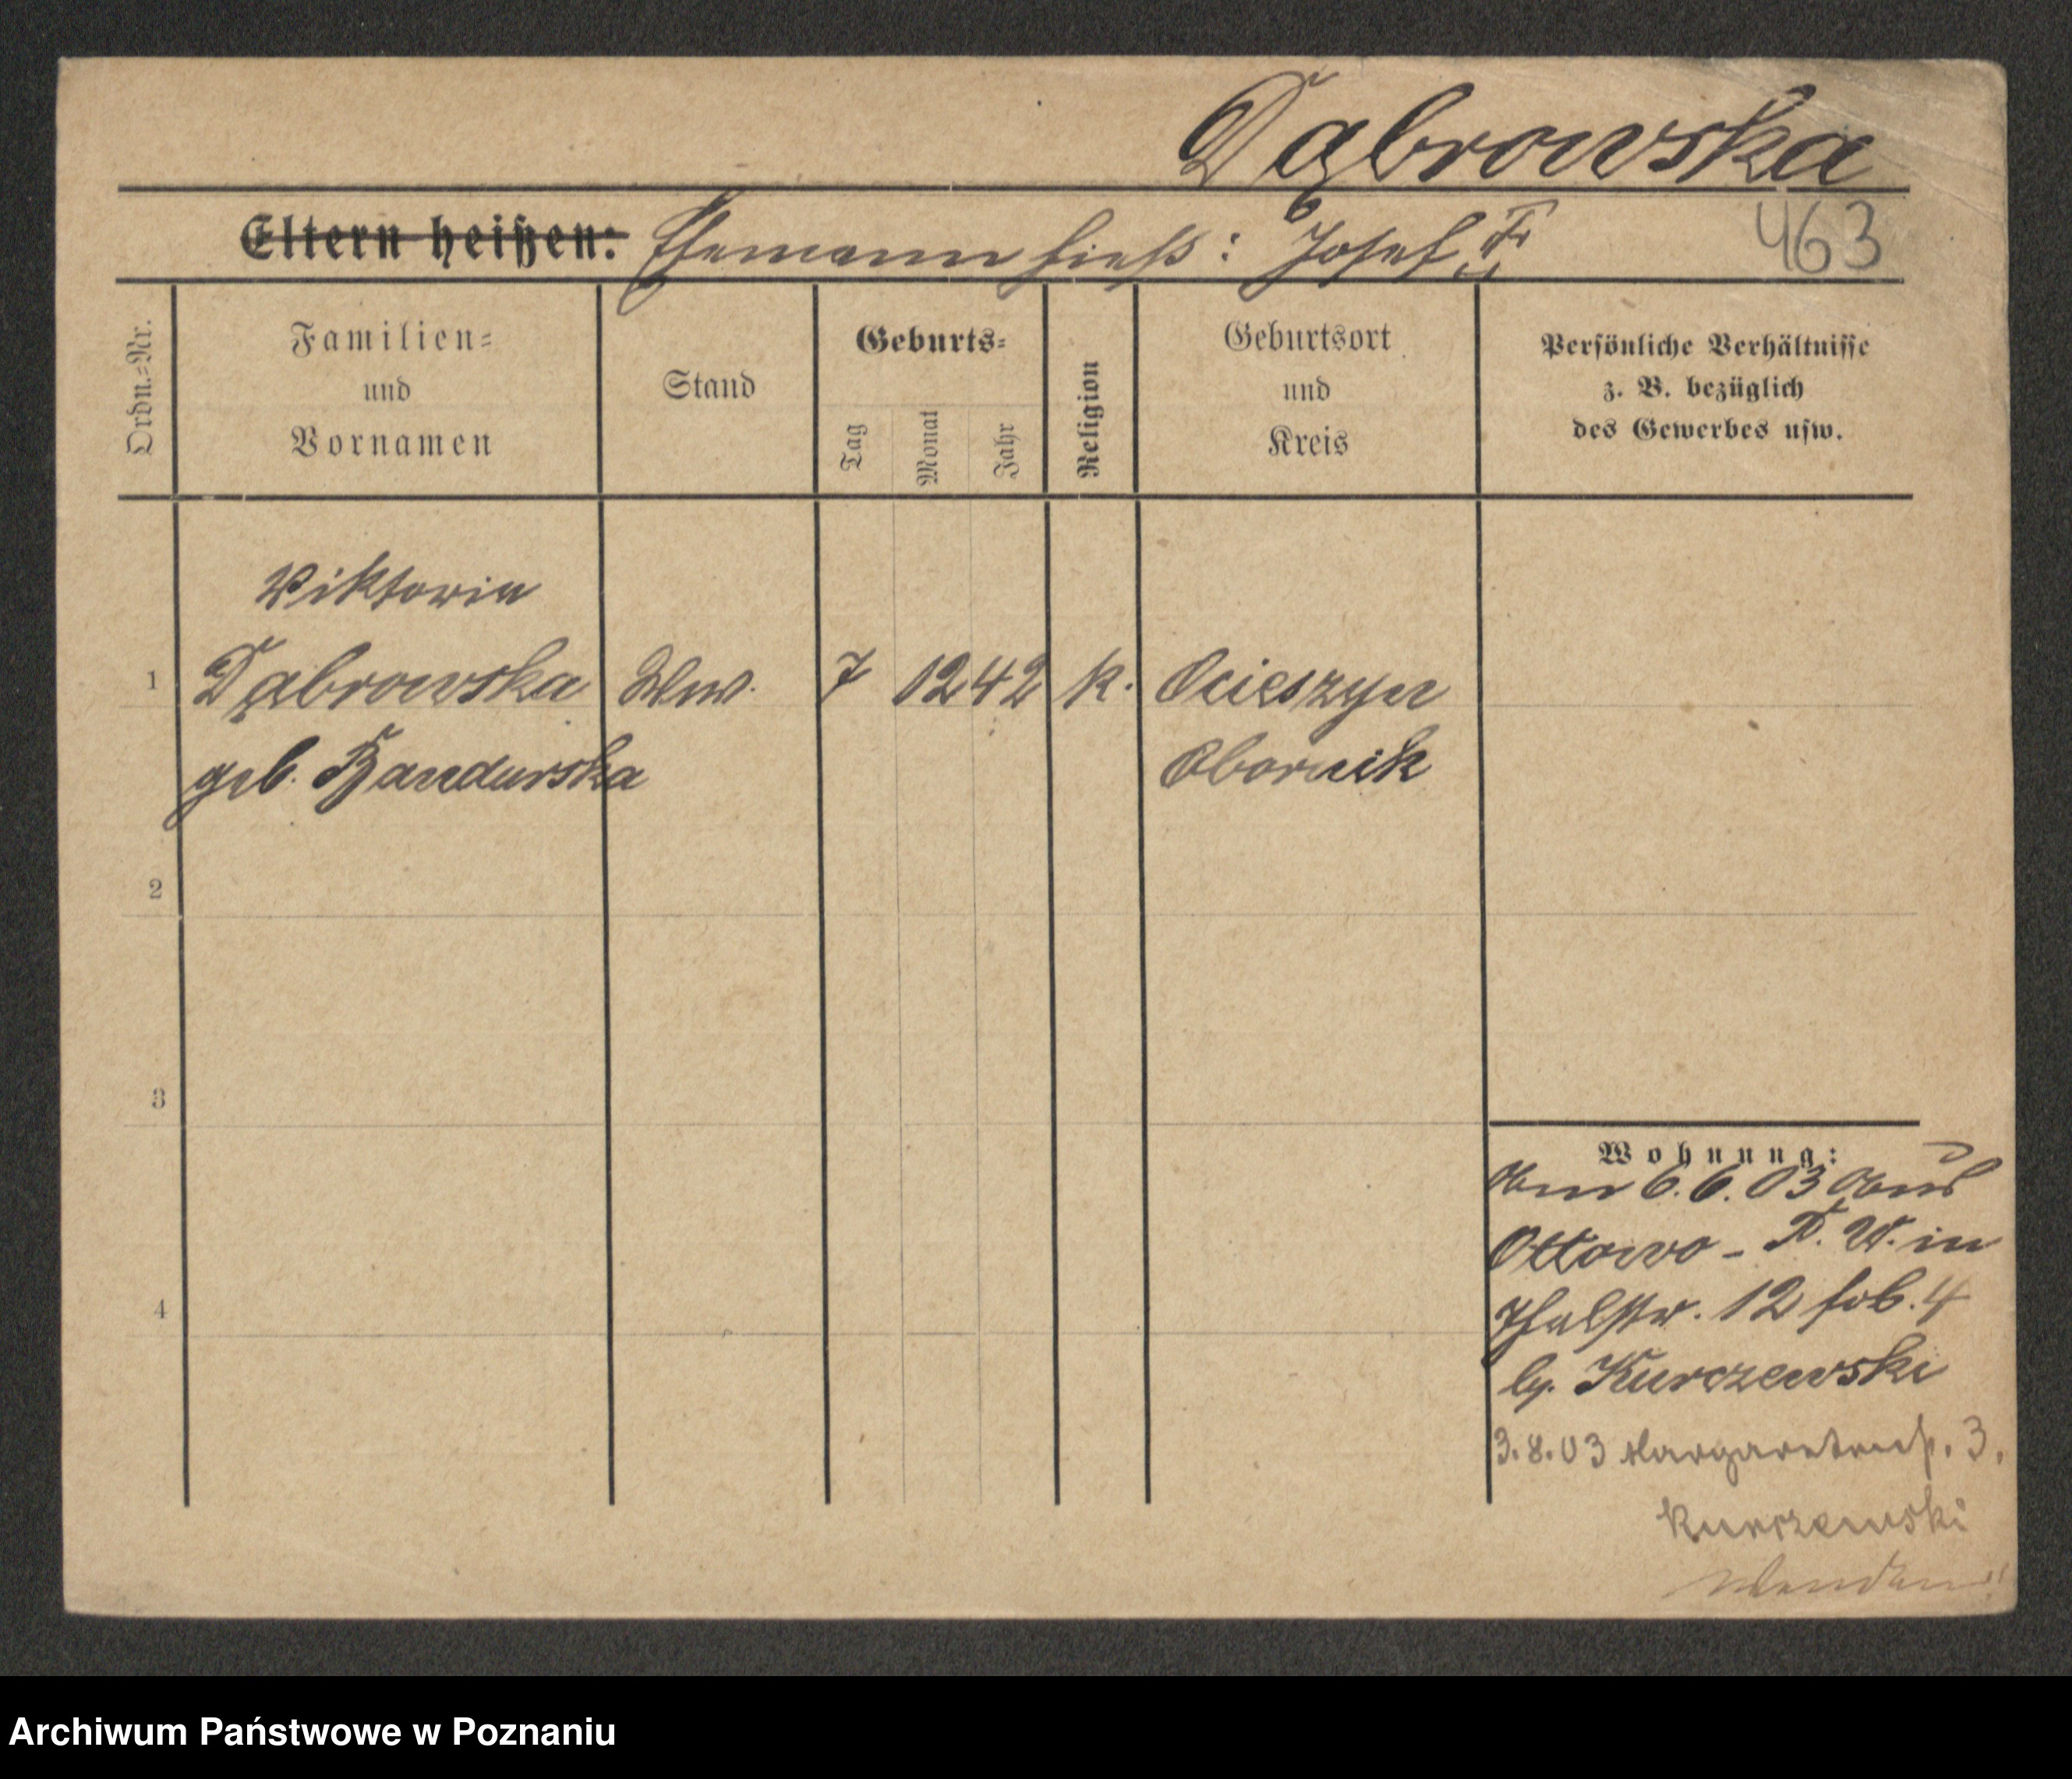 Dąbrowska
Eltern heißen: Ehemann hieß: Josef †
463
Ordn.-Nr.
Familien-
und
Vornamen
Stand
Geburts-
Tag
Monat
Jahr
Religion
Geburtsort
und
Kreis
Persönliche Verhältnisse
z. B. bezüglich
des Gewerbes usw.
Viktoria
1 Dąbrowska Ww. 7 12 42 k. Ocieszyn
geb. Bandurska Obornik
2
3
4
Wohnung:
6.6.03
Ottowo - P. W. in
Thalstr. 12 4
b. Kurczewski
3.8.03 Margaretenstr. 3.
Kurczewski
Archiwum Państwowe w Poznaniu